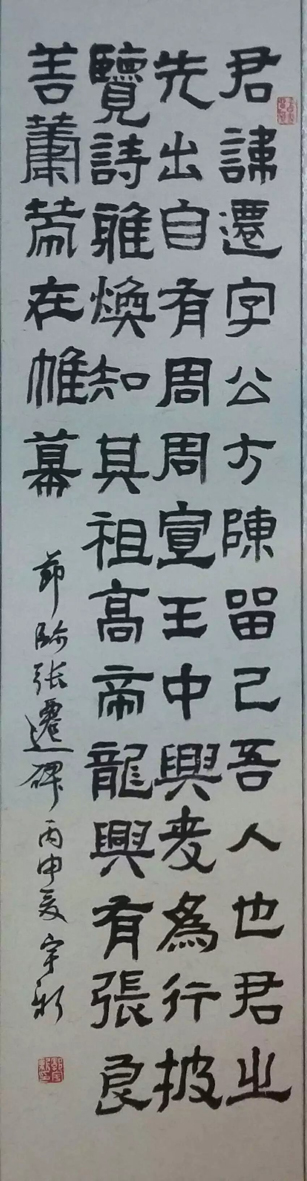 君諱遷字公方陳留己吾人也君之
先出自有周周宣王中興為行披
覽詩雅煥知其祖高帝龍興有張良
善籌策在帷幕
節臨張遷碑丙申夏宇